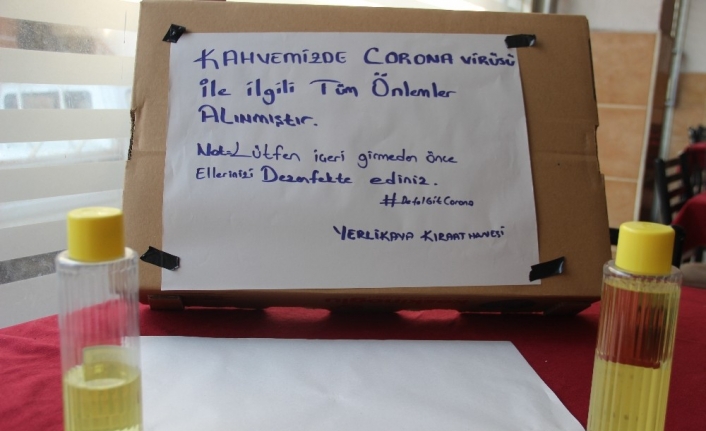 KAHVEMİZDE CORONA VİRÜSÜ
İle ilgili Tüm Önlemler
ALINMIŞTIR.
Not: Lütfen içeri girmeden önce
Ellerinizi Dezenfekte ediniz.
#DefolGitCorona
YERLİKAYA KIRAATHANESİ